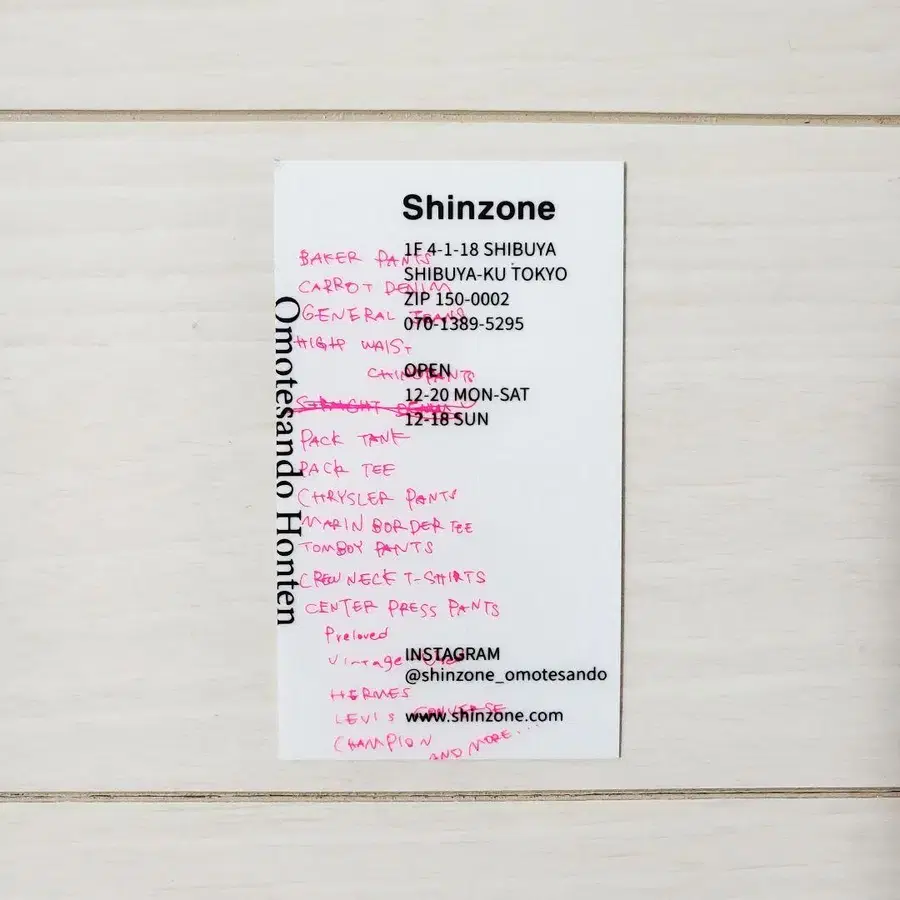 Shinzone
1F 4-1-18 SHIBUYA
SHIBUYA-KU TOKYO
ZIP 150-0002
070-1389-5295
OPEN
12-20 MON-SAT
12-18 SUN
INSTAGRAM
@shinzone_omotesando
www.shinzone.com
Omotesando Honten
BAKER PANTS
CARROT DENIM
GENERAL
HIGH WAIST
CHINO PANTS
STRAIGHT DENIM
PACK TANK
PACK TEE
CHRYSLER PANTS
MARIN BORDER TEE
TOMBOY PANTS
CREW NECK T-SHIRTS
CENTER PRESS PANTS
Preloved
Vintage
HERMES
LEVI'S CONVERSE
CHAMPION
AND MORE....